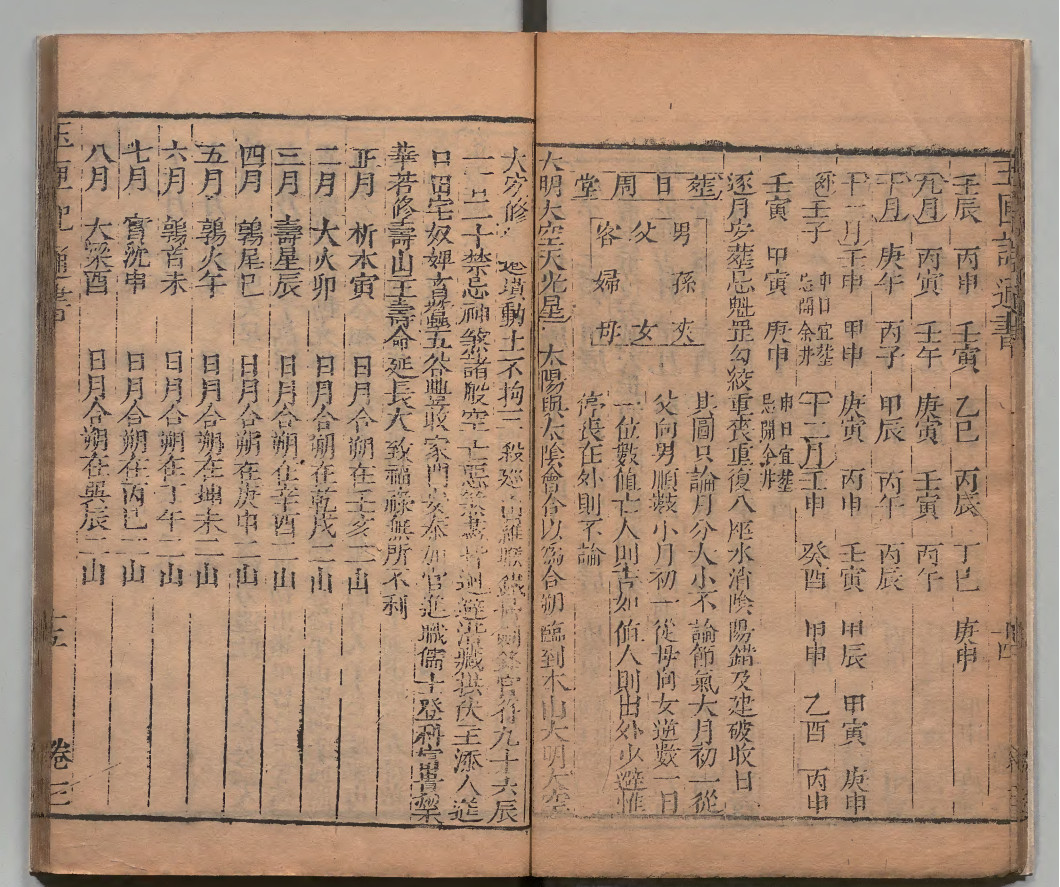 壬辰 丙申 壬寅 乙巳 丙辰 丁巳 庚申
九月 丙寅 壬午 庚寅 壬寅 丙午
十月 庚午 丙子 甲辰 丙午 丙辰
十一月 壬申 甲申 庚寅 丙申 壬寅 甲辰 甲寅 庚申
壬子 申日宜塟 忌開金井 十二月 壬申 癸酉 甲申 乙酉 丙申
壬寅 甲寅 庚申 申日宜塟 忌開金井
逐月安葬忌魁罡勾絞重喪重復八座水消陰陽錯及建破收日
塟日周堂
男 孫 夾
父 女
客 婦 母
其圖只論月分大小不論節氣大月初一從
父向男順數小月初一從母向女逆數一日
一位數值亡人則吉如值人則出外少避惟
停喪在外則不論
大明大空天光星 太陽與太陰會合以為合朔臨到本山大明大空
動土不拘三殺
二十禁忌神煞諸般空亡惡煞
口田宅奴婢育蠶五谷豐收家門安泰加官進職儒士登科富貴榮
華若修壽山王壽命延長大致福祿無所不利
正月 析木寅 日月合朔在壬亥二山
二月 大火卯 日月合朔在乾戌二山
三月 壽星辰 日月合朔在辛酉二山
四月 鶉尾巳 日月合朔在庚申二山
五月 鶉火午 日月合朔在坤未二山
六月 鶉首未 日月合朔在丁午二山
七月 實沈申 日月合朔在丙巳二山
八月 大梁酉 日月合朔在巽辰二山
卷三